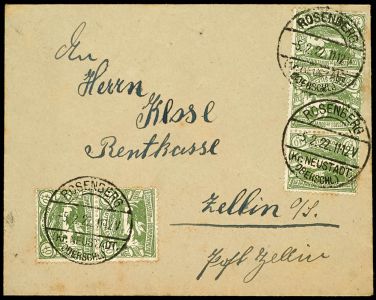 An
Herrn Klose
Rentkasse
Zellin O/S.
Post Zellin
ROSENBERG
5.2.22.11-12V
(KR. NEUSTADT
OBERSCHL.)
ROSENBERG
5.2.22.11-12V
(KR. NEUSTADT
OBERSCHL.)
ROSENBERG
(KR. NEUSTADT
OBERSCHL.)